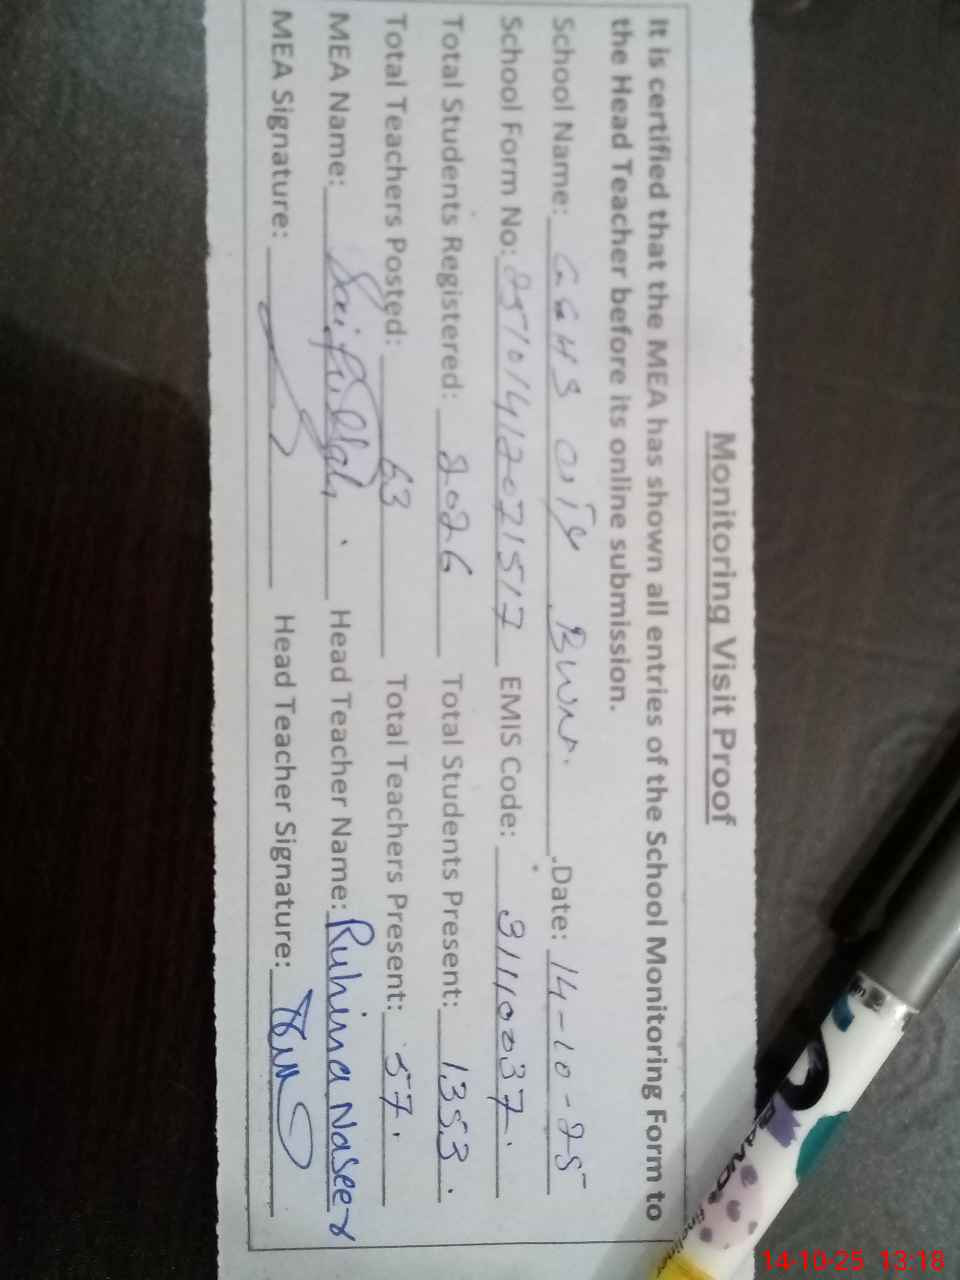 Monitoring Visit Proof
It is certified that the MEA has shown all entries of the School Monitoring Form to
the Head Teacher before its online submission.
School Name: GGHS City Bwr. Date: 14-10-25
School Form No: 25101412071517 EMIS Code: 31110037.
Total Students Registered: 2026 Total Students Present: 1353.
Total Teachers Posted: 63 Total Teachers Present: 57.
MEA Name: Saifullah. Head Teacher Name: Ruhina Naseer
MEA Signature: Head Teacher Signature:
14-10-25 13:18